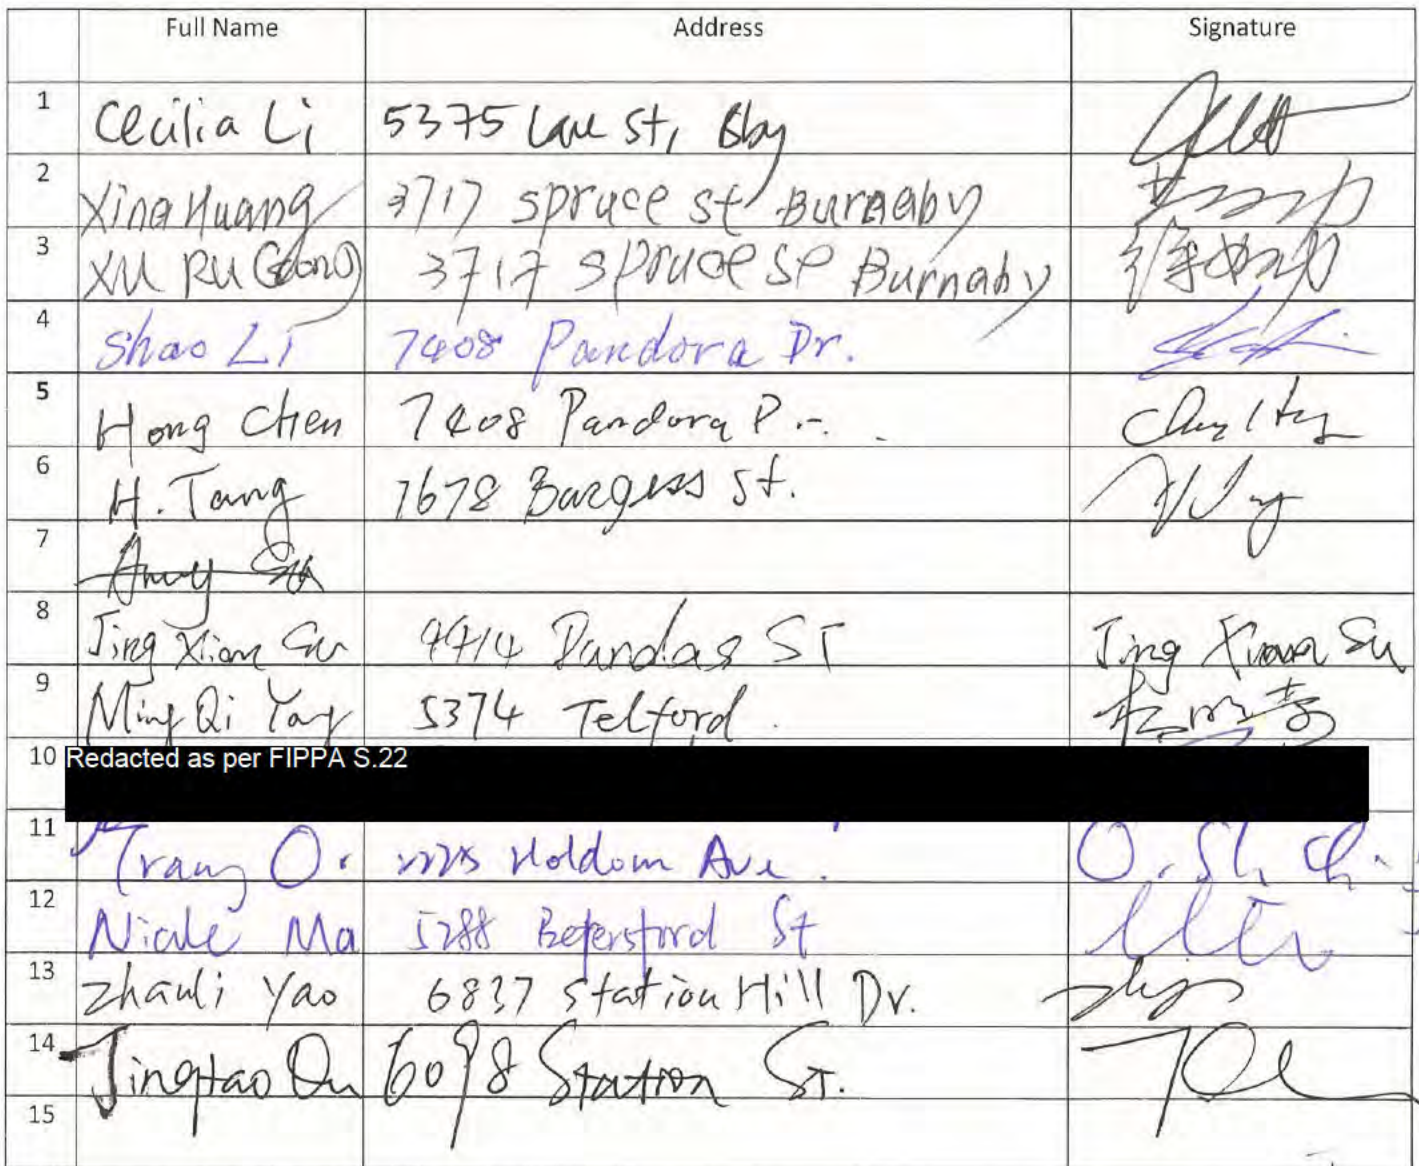 Full Name Address Signature
1 Cecilia Li 5375 Lane St, Bby
2 Xing Huang 3717 spruce st Burnaby
3 XU RU Gong 3717 spruce se Burnaby 徐如功
4 Shao Li 7408 Pandora Dr.
5 Hong Chen 7408 Pandora
6 H. Tang 7678 Burgess St.
7 Amy Su
8 Jing Xian Su 4414 Dundas ST Jing Xian Su
9 Ming Qi Yang 5374 Telford
10 Redacted as per FIPPA S.22
11 Trang O. Holdom Ave.
12 Nicole Ma 5288 St
13 zhauli Yao 6837 station Hill Dr.
14 Jingtao Qu 6098 Station ST.
15